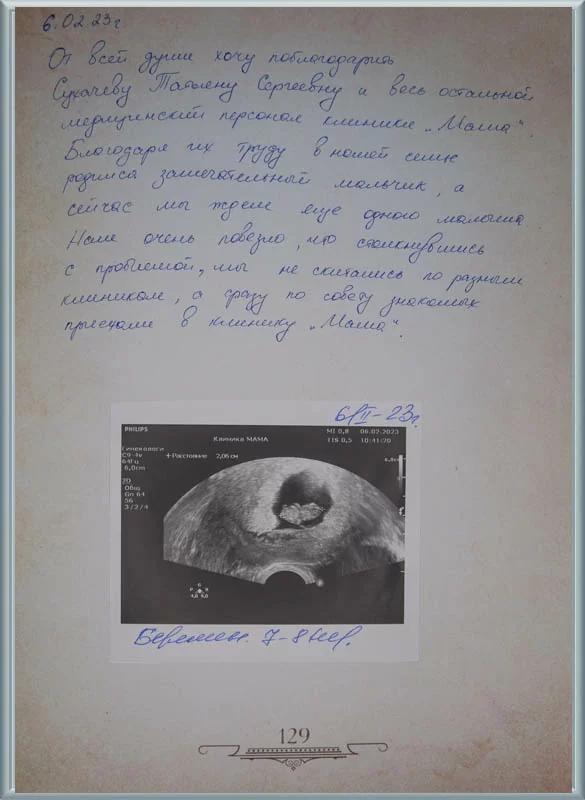 6.02.23г
От всей души хочу поблагодарить
Сухачеву Татьяну Сергеевну и весь остальной
медицинский персонал клиники „Мама".
Благодаря их труду в нашей семье
родился замечательный мальчик, а
сейчас мы ждем еще одного малыша
Нам очень повезло, что столкнувшись
с проблемой, мы не скитались по разным
клиникам, а сразу по совету знакомых
приехали в клинику „Мама".
6/II-23г.
PHILIPS
MI 0,8 06.02.2023
Клиника МАМА
TIS 0,5 10:41:20
Гинекологи
C9-4v
64Гц
6,0cm
+Расстояние 2,06 см
2D
Общ
Gn 64
56
3/2/4
Беремен. 7-8 нед.
129